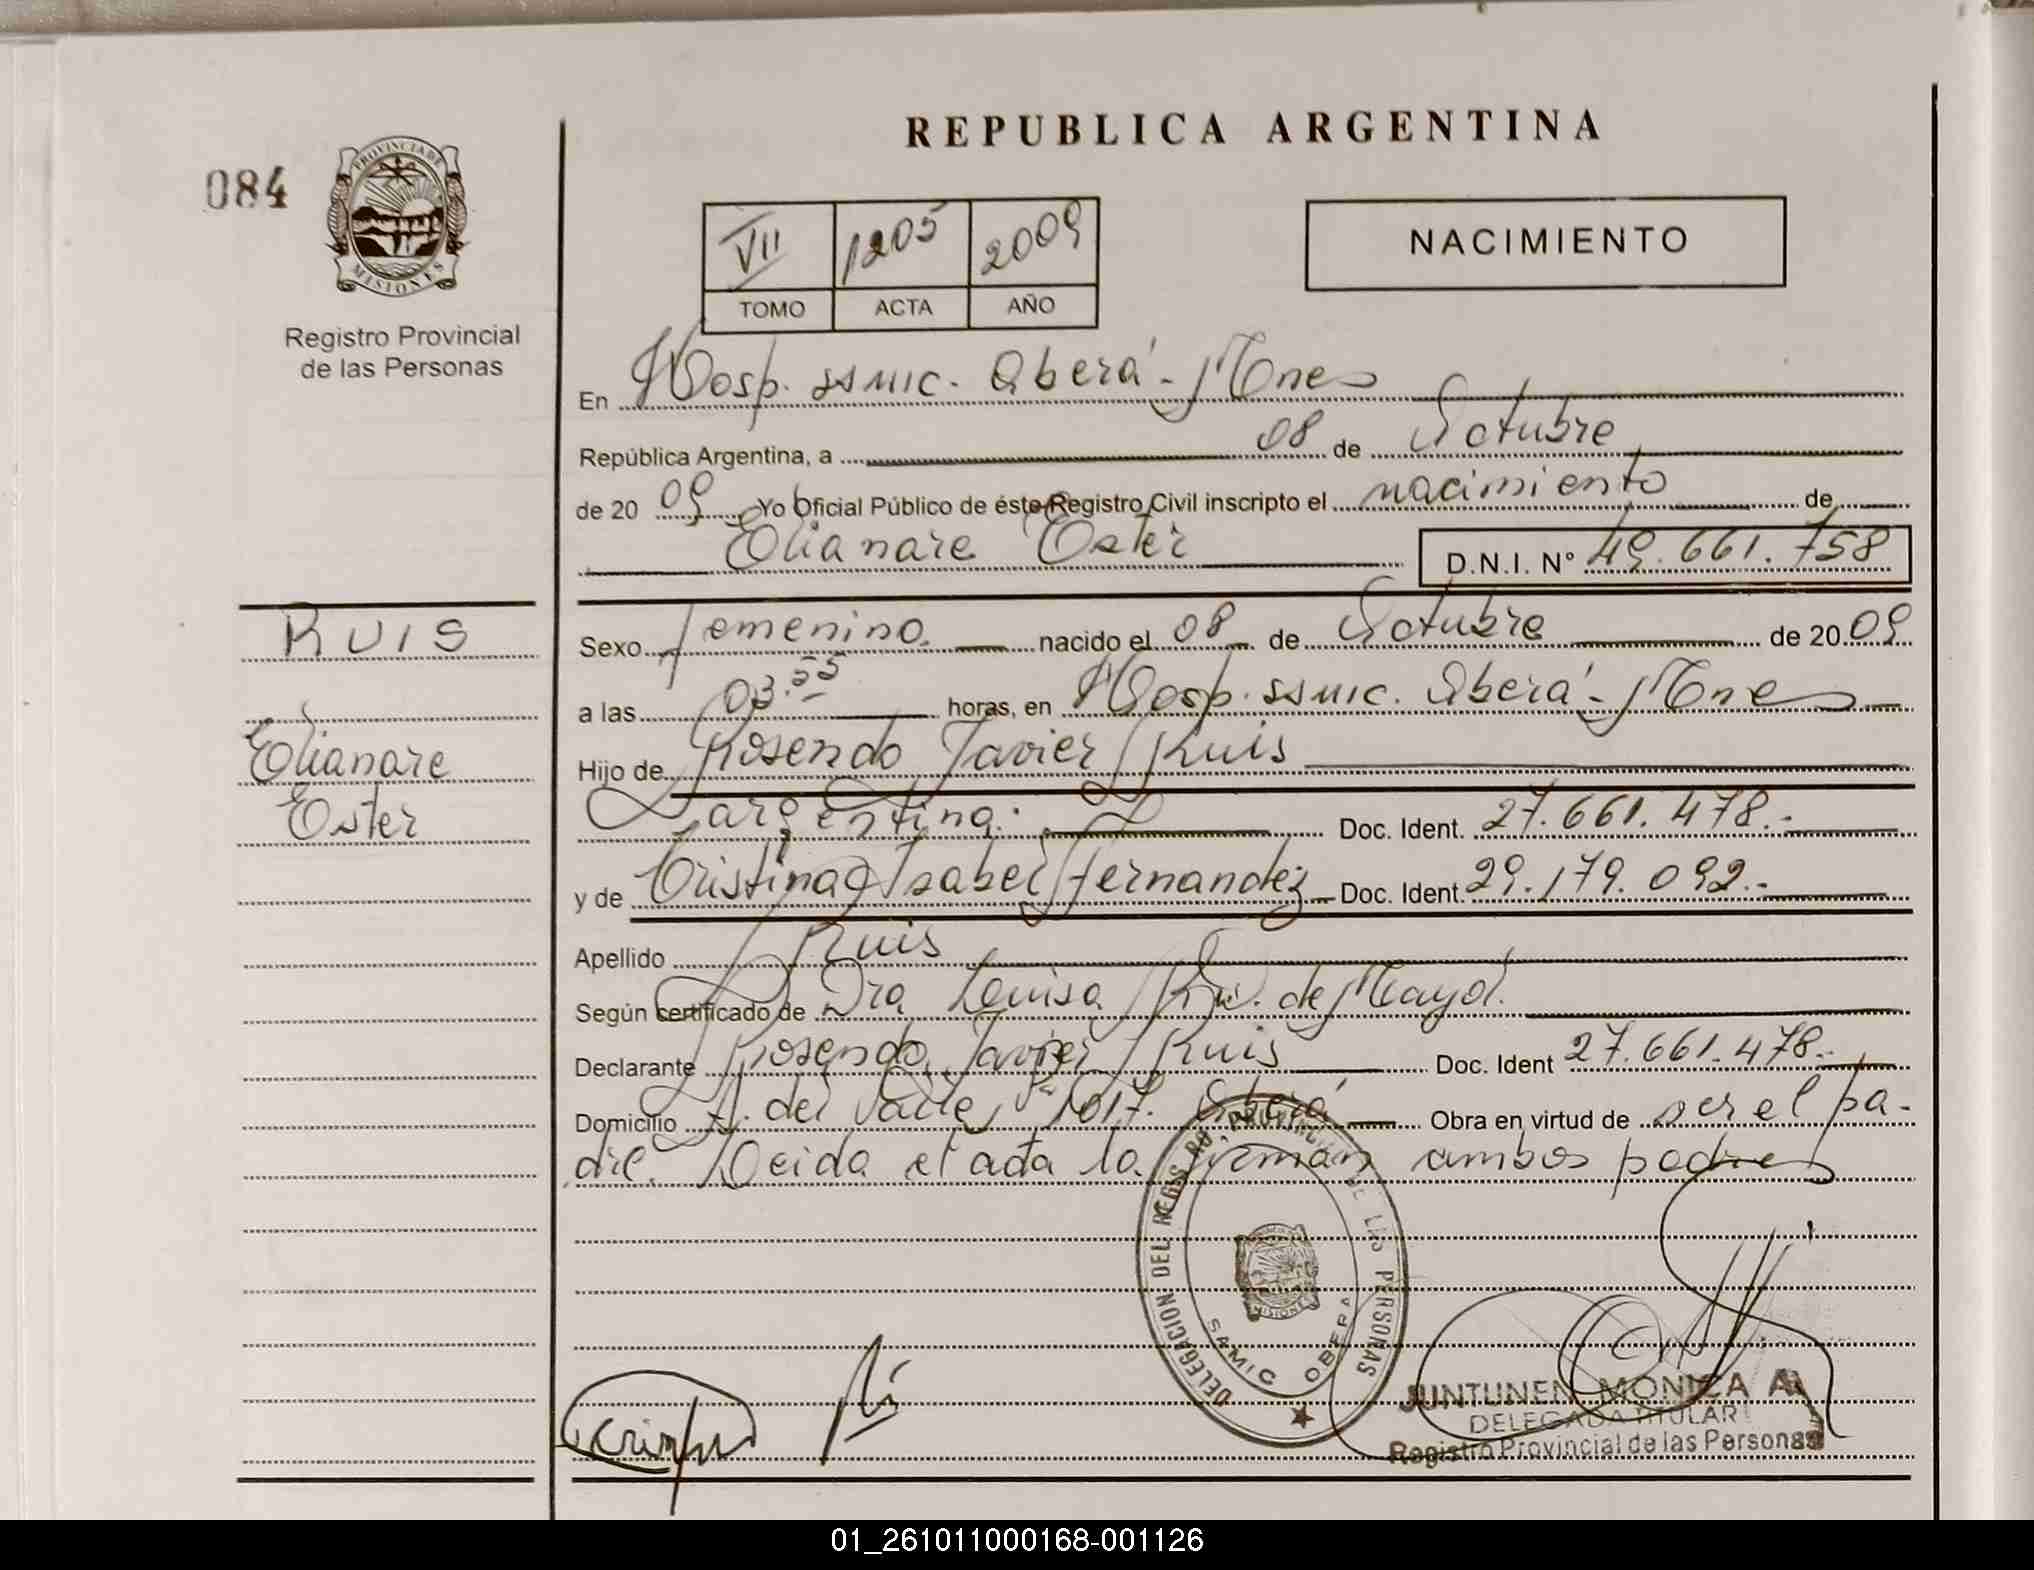 REPUBLICA ARGENTINA
084
PROVINCIA DE
MISIONES
Registro Provincial
de las Personas
VII 1205 2009
TOMO ACTA AÑO
NACIMIENTO
En Hosp. SSMIC. Oberá - Mnes
República Argentina, a 08 de Octubre
de 20 09 Yo Oficial Público de éste Registro Civil inscripto el nacimiento de
Elianare Ester D.N.I. N° 49.661.758
RUIS
Elianare
Ester
Sexo femenino. nacido el 08 de Octubre de 20 09
a las 03.55 horas, en Hosp. SSMIC. Oberá - Mnes
Hijo de Rosendo Javier Ruis
argentina. Doc. Ident. 27.661.478.-
y de Cristina Isabel Fernandez Doc. Ident. 29.179.092.-
Apellido Ruis
Según certificado de Dra Luisa de
Declarante Rosendo Javier Ruis Doc. Ident 27.661.478.-
Domicilio A. del Valle 1017. Oberá Obra en virtud de ser el pa-
dre. Leida el acta la firman ambos padres
DELEGACION DEL REGISTRO PROVINCIAL DE LAS PERSONAS
SAMIC OBERA
MISIONES
JUNTUNEN MONICA A.
DELEGADA TITULAR
Registro Provincial de las Personas
01_261011000168-001126